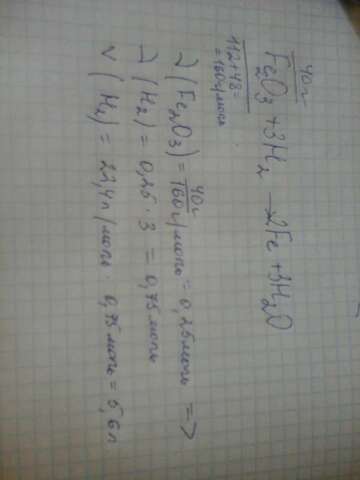 40г
Fe2O3 + 3H2 → 2Fe + 3H2O
112+48=
=160г/моль
ν(Fe2O3) = 40г/160г/моль = 0,25моль =>
ν(H2) = 0,25 · 3 = 0,75 моль
V(H2) = 22,4 л/моль · 0,75моль = 5,6л